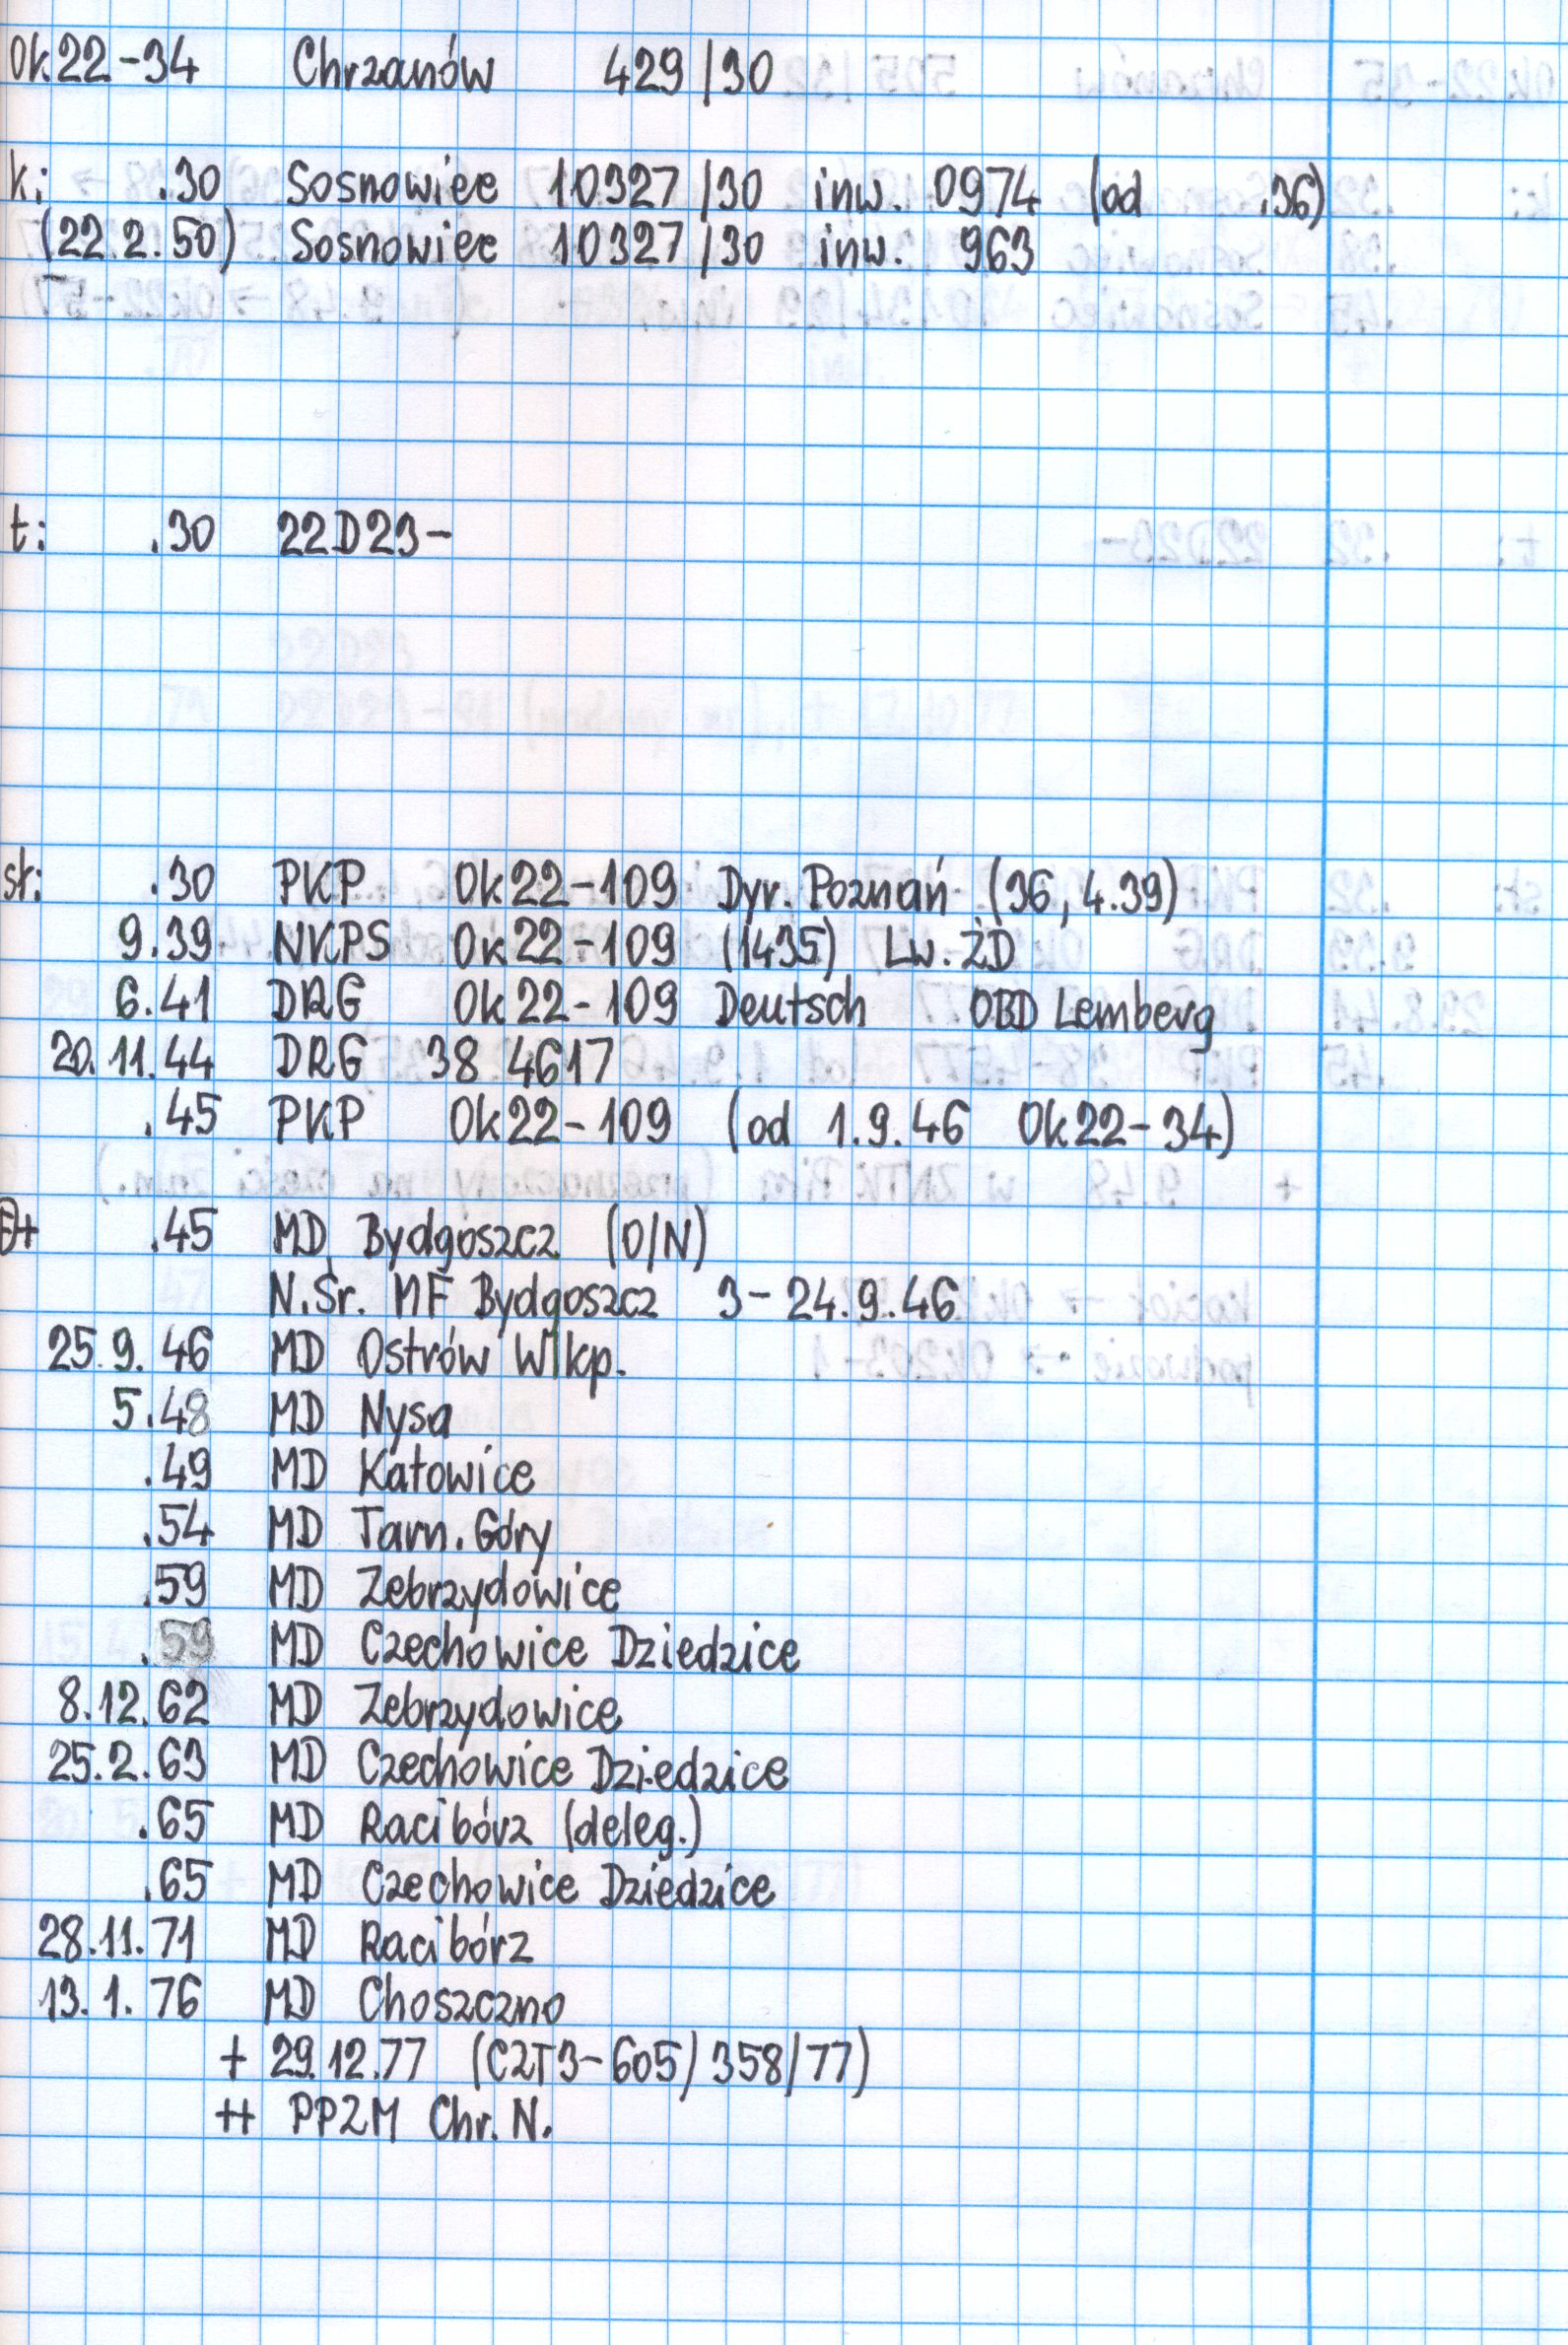 Ok22-34 Chrzanów 429/30
k: .30 Sosnowiec 10327/30 inw. 0974 (od .36)
(22.2.50) Sosnowiec 10327/30 inw. 963
t: .30 22D23-
st: .30 PKP Ok22-109 Dyr. Poznań (36, 4.39)
9.39 NKPS Ok22-109 (1435) Lw. ŻD
6.41 DRG Ok22-109 Deutsch OBD Lemberg
20.11.44 DRG 38 4617
.45 PKP Ok22-109 (od 1.9.46 Ok22-34)
.45 MD Bydgoszcz (O/N)
N.Śr. MF Bydgoszcz 3-24.9.46
25.9.46 MD Ostrów Wlkp.
5.48 MD Nysa
.49 MD Katowice
.54 MD Tarn. Góry
.59 MD Zebrzydowice
.59 MD Czechowice Dziedzice
8.12.62 MD Zebrzydowice
25.2.63 MD Czechowice Dziedzice
.65 MD Racibórz (deleg.)
.65 MD Czechowice Dziedzice
28.11.71 MD Racibórz
13.1.76 MD Choszczno
+ 29.12.77 (C2T3-605/358/77)
++ PPZM Chr. N.